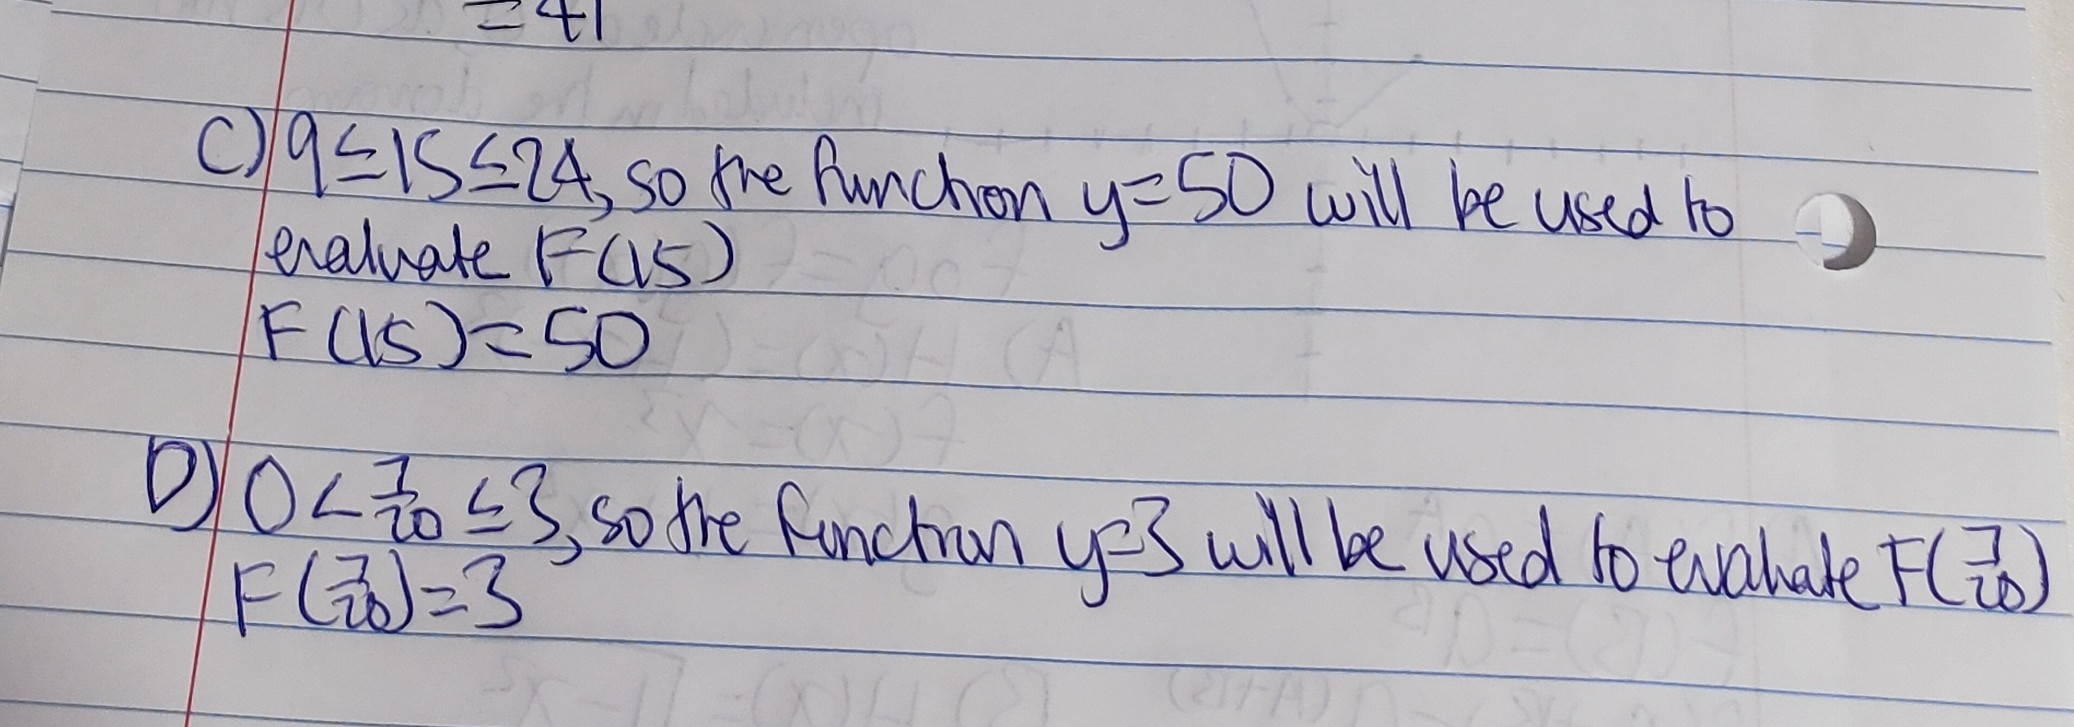 =41
C) 9≤15≤24, so the function y=50 will be used to
evaluate F(15)
F(15)=50
D) 0<7/20≤3, so the function y=3 will be used to evaluate F(7/20)
F(7/20)=3